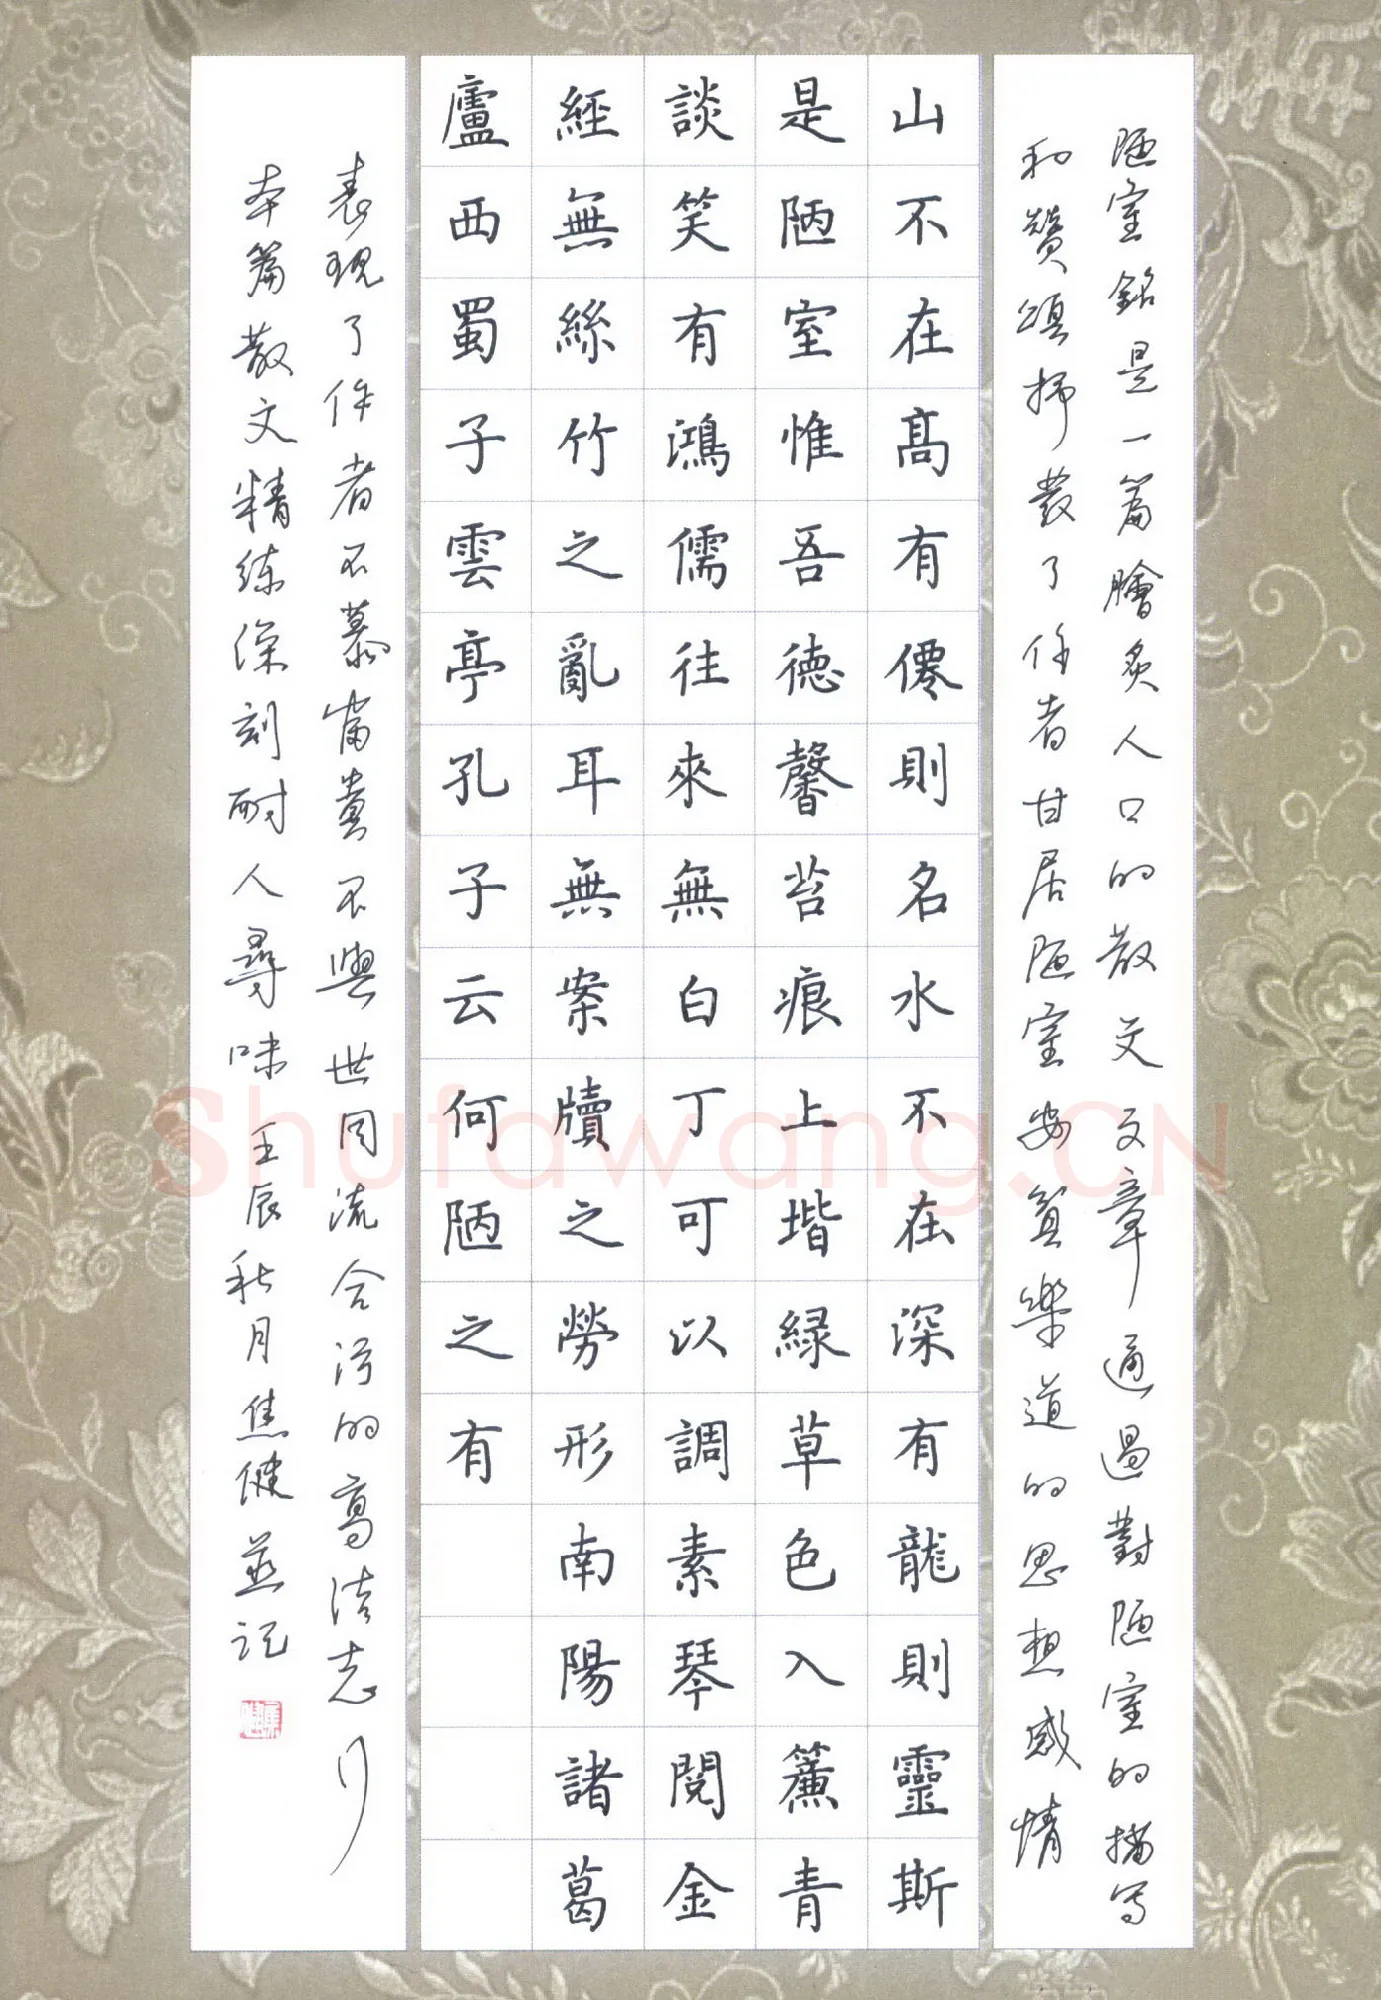 陋室銘是一篇膾炙人口的散文文章通過對陋室的描写
和贊頌抒發了作者甘居陋室安貧樂道的思想感情
山不在高有僊則名水不在深有龍則靈斯
是陋室惟吾德馨苔痕上堦緑草色入簾青
談笑有鴻儒往來無白丁可以調素琴閱金
經無絲竹之亂耳無案牘之勞形南陽諸葛
廬西蜀子雲亭孔子云何陋之有
表現了作者不慕富貴不與世同流合污的高洁志行
本篇散文精练深刻耐人尋味 壬辰秋月焦健並記
Shufawang.CN